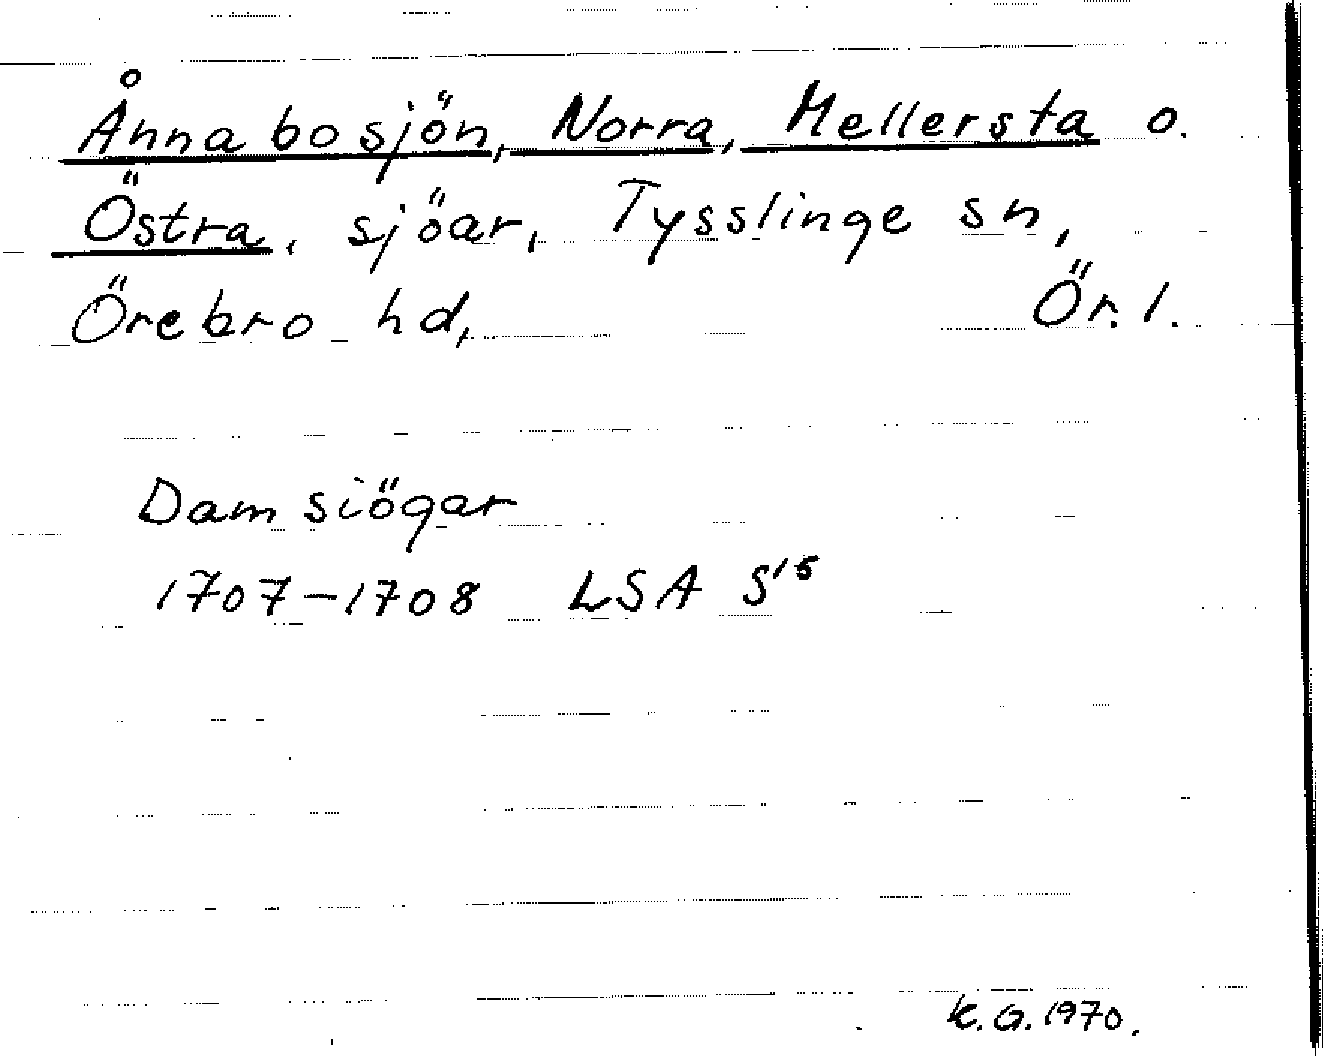 Ånnabosjön, Norra, Mellersta o.
Östra, sjöar, Tysslinge sn,
Örebro hd, Ör. l.
Dam siögar
1707-1708 LSA S¹⁵
K.G. 1970.